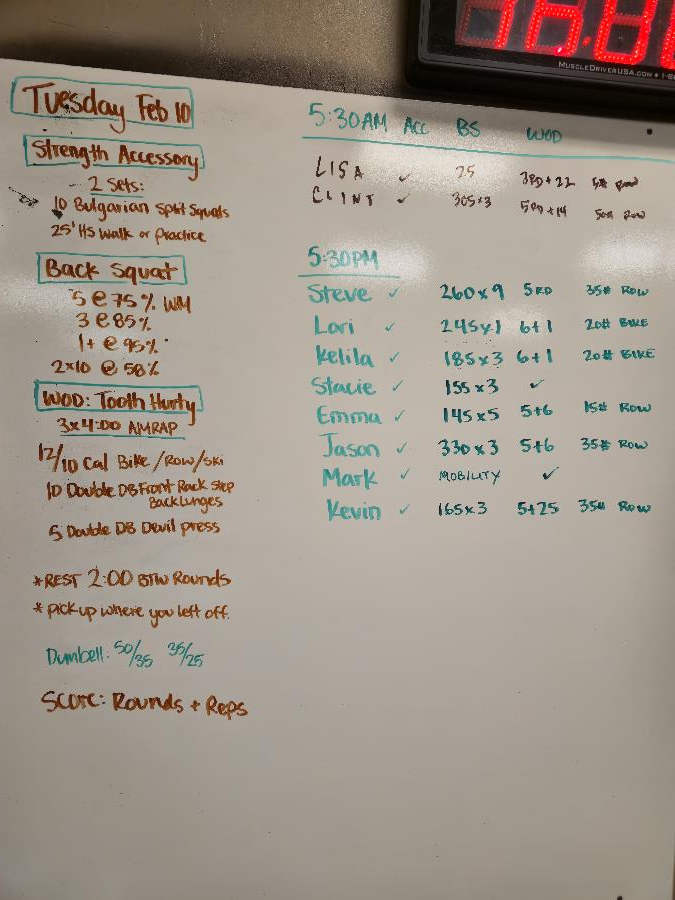 MUSCLEDRIVERUSA.COM • 1-8
Tuesday Feb 10
Strength Accessory
2 Sets:
10 Bulgarian Split Squats
25' HS Walk or Practice
Back Squat
5 @ 75% WM
3 @ 85%
1+ @ 95%
2x10 @ 58%
WOD: Tooth Hurty
3x4:00 AMRAP
12/10 Cal Bike/Row/Ski
10 Double DB Front Rack Step
Back Lunges
5 Double DB Devil press
*REST 2:00 BTW Rounds
* pick up where you left off.
Dumbell: 50/35 35/25
Score: Rounds + Reps
5:30AM Acc BS WOD
LISA ✓ 75 3RD+22 Row
CLINT ✓ 305x3 5RD+14 50# Row
5:30PM
Steve ✓ 260x9 5RD 35# ROW
Lori ✓ 245x1 6+1 20# BIKE
Kelila ✓ 185x3 6+1 20# BIKE
Stacie ✓ 155x3 ✓
Emma ✓ 145x5 5+6 15# ROW
Jason ✓ 330x3 5+6 35# ROW
Mark ✓ MOBILITY ✓
Kevin ✓ 165x3 5+25 35# ROW